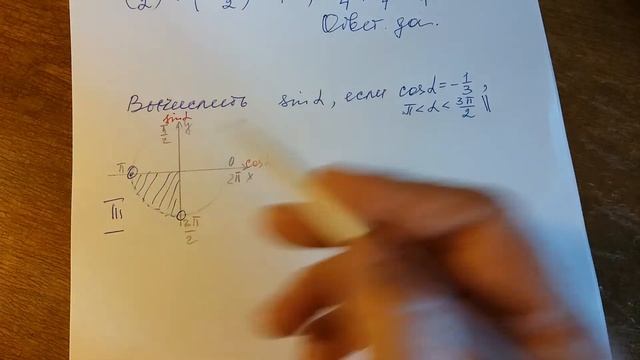 Ответ. да.
Вычислить sinα, если cosα=-1/3,
π<α<3π/2
sinα
π/2 y
π 0 cos
2π x
III
3π/2